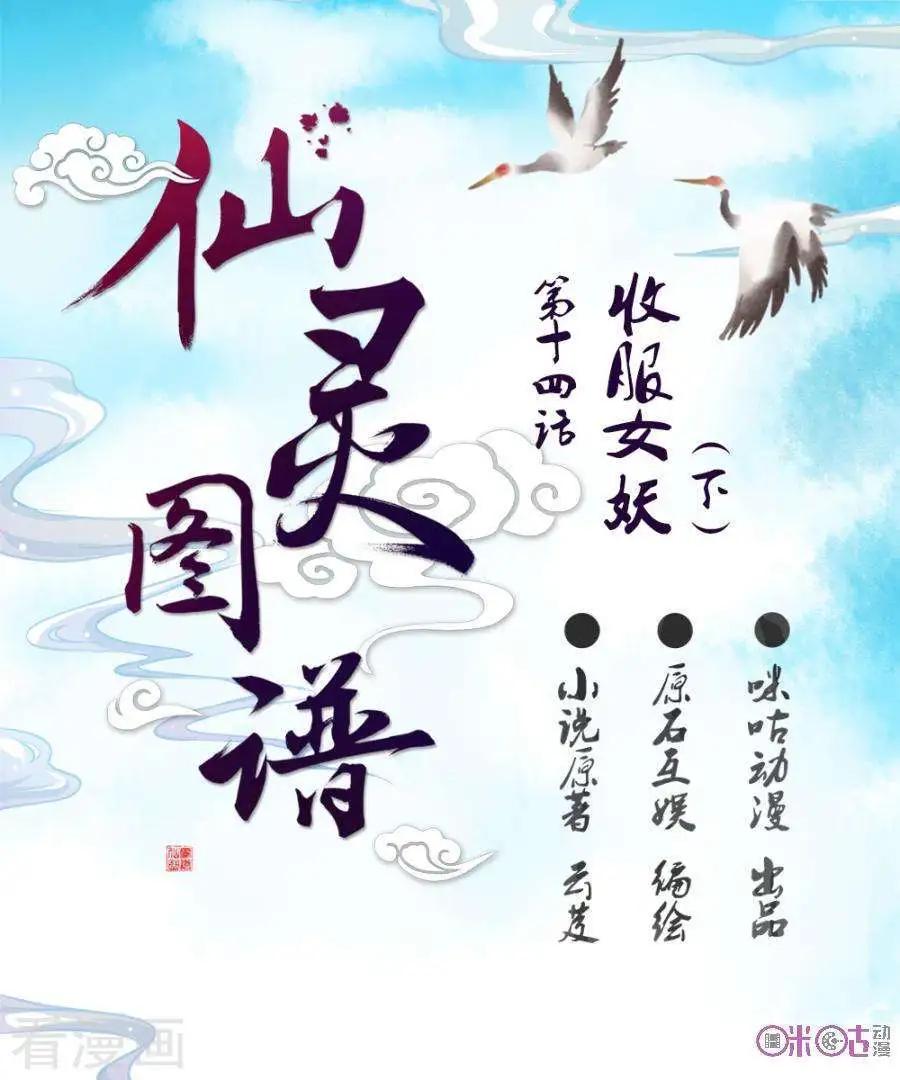 仙灵图谱
第十四话
收服女妖
(下)
咪咕动漫 出品
原石互娱 编绘
小说原著 云芨
看漫画
咪咕动漫